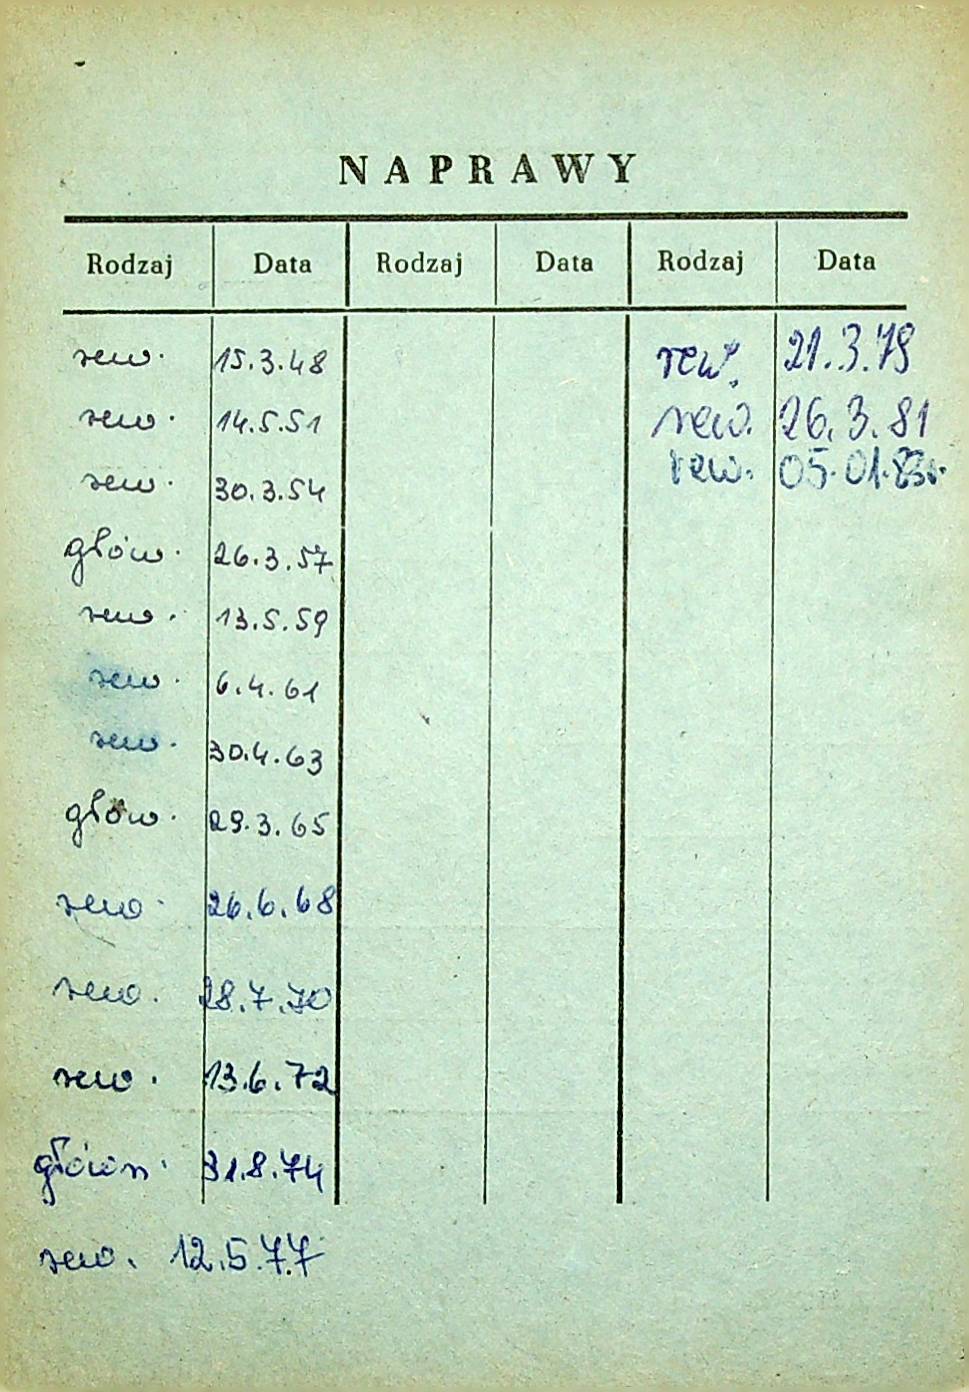 NAPRAWY
Rodzaj Data Rodzaj Data Rodzaj Data
rew. 15.3.48
rew. 14.5.51
rew. 30.3.54
głów. 26.3.57
rew. 13.5.59
rew. 6.4.61
rew. 30.4.63
głów. 29.3.65
rew. 26.6.68
rew. 28.7.70
rew. 13.6.72
główn. 31.8.74
rew. 12.5.77
rew. 21.3.79
rew. 26.3.81
rew. 05.01.83r.